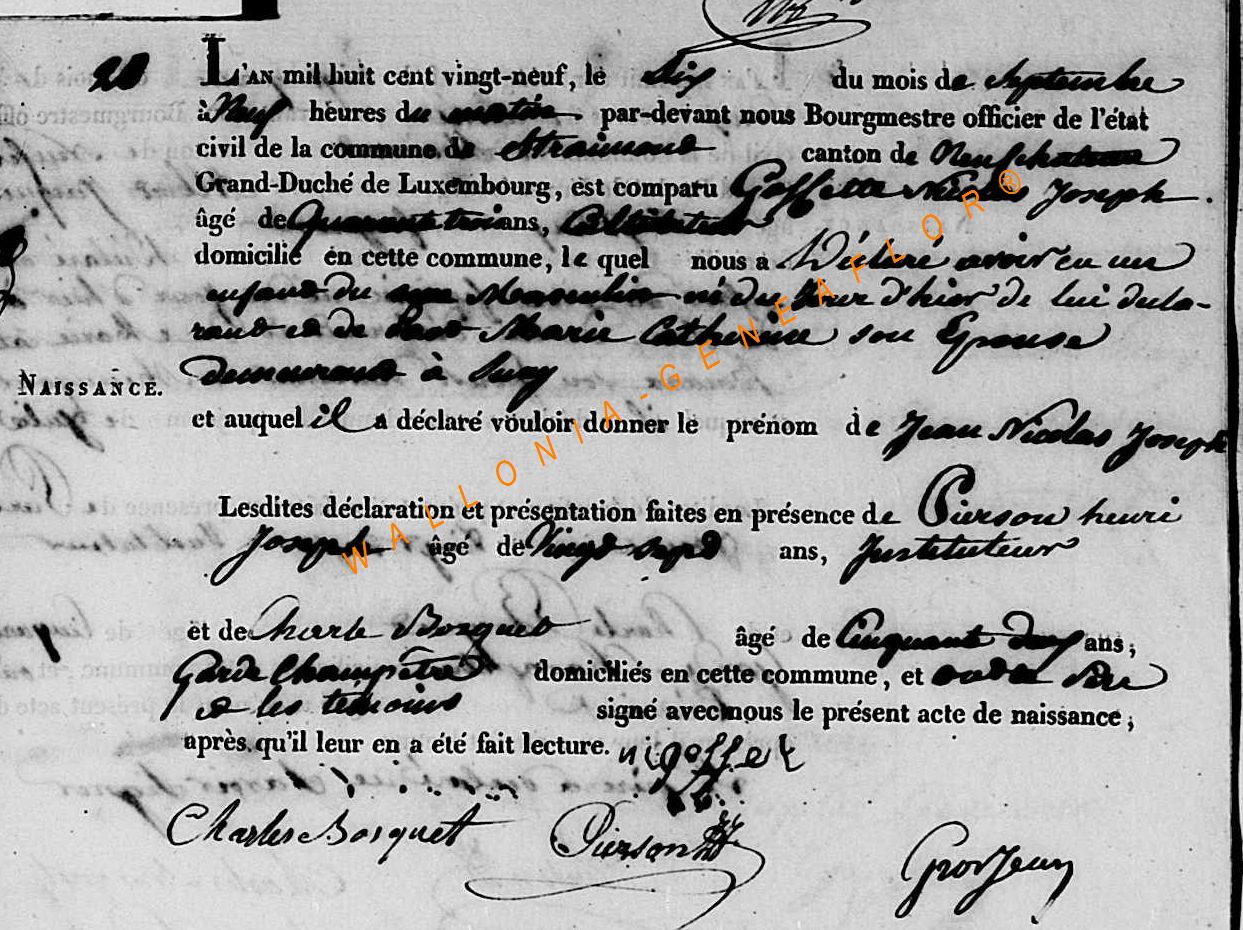 20
L'AN mil huit cent vingt-neuf, le Dix du mois de Septembre
à Neuf heures du matin par-devant nous Bourgmestre officier de l'état
civil de la commune de Straimont canton de Neufchateau
Grand-Duché de Luxembourg, est comparu Goffette Nicolas Joseph.
âgé de Quarante trois ans, Cultivateur
domicilié en cette commune, le quel nous a Déclaré avoir eu un
enfant du sexe Masculin né du jour d'hier de lui décla-
rant et de Marie Catherine son Epouse
demeurant à Suxy
NAISSANCE.
et auquel il a déclaré vouloir donner le prénom de Jean Nicolas Joseph
Lesdites déclaration et présentation faites en présence de Pierson henri
Joseph âgé de Vingt sept ans, Instituteur
et de Charle Bosquet âgé de Cinquant deux ans,
Garde Champêtre domiciliés en cette commune, et Père
et les témoins signé avec nous le présent acte de naissance,
après qu'il leur en a été fait lecture. n i goffet
Charles Bosquet Pierson GrosJean
WALLONIA-GENEAFLOR®